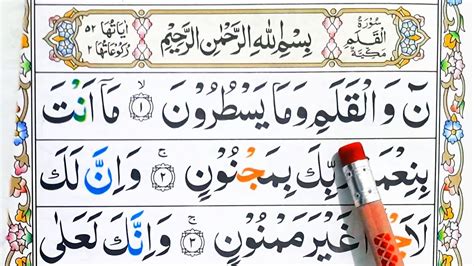 سُورَةُ الْقَلَمِ مَكِّيَّةٌ
بِسْمِ اللّٰهِ الرَّحْمٰنِ الرَّحِيْمِ
اٰيَاتُهَا ٥٢ رُكُوْعَاتُهَا ٢
نٓ وَالْقَلَمِ وَمَا يَسْطُرُوْنَ ۙ﴿١﴾ مَاۤ اَنْتَ
بِنِعْمَةِ رَبِّكَ بِمَجْنُوْنٍ ۚ﴿٢﴾ وَاِنَّ لَكَ
لَاَجْرًا غَيْرَ مَمْنُوْنٍ ۚ﴿٣﴾ وَاِنَّكَ لَعَلٰى